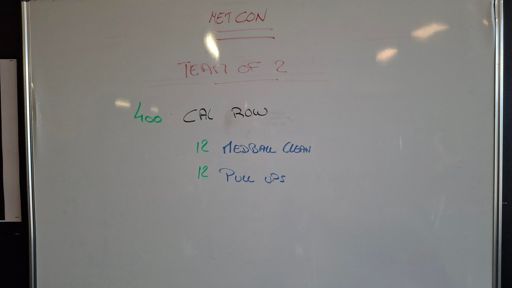 METCON
TEAM OF 2
400 CAL ROW
12 MEDBALL CLEAN
12 PULL UPS